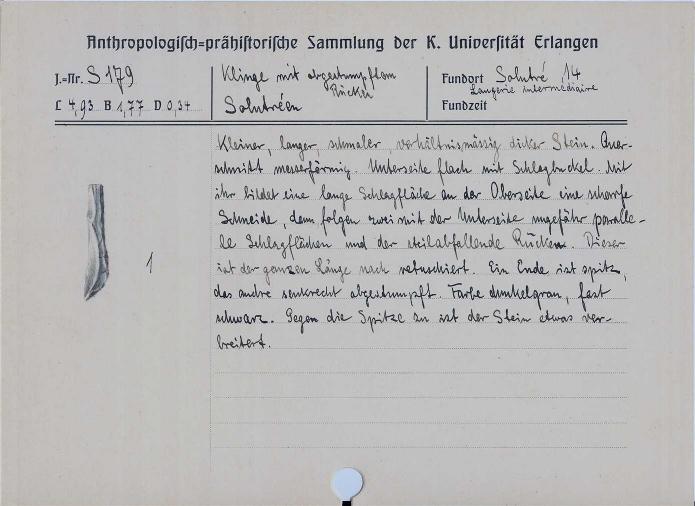 Anthropologisch=prähistorische Sammlung der K. Universität Erlangen
J.=Nr. S 179
L 4,93 B 1,77 D 0,34
Klinge mit abgestumpftem
Rücken
Solutréen
Fundort Solutré 14
Laugerie intermédiaire
Fundzeit
Kleiner, langer, schmaler, verhältnismässig dicker Stein. Quer-
schnitt messerförmig. Unterseite flach mit Schlagbuckel. Mit
ihr bildet eine lange Schlagfläche an der Oberseite eine scharfe
Schneide, dann folgen zwei mit der Unterseite ungefähr paralle-
le Schlagflächen und der steilabfallende Rücken. Dieser
ist der ganzen Länge nach retuschiert. Ein Ende ist spitz,
das andre senkrecht abgestumpft. Farbe dunkelgrau, fast
schwarz. Gegen die Spitze zu ist der Stein etwas ver-
breitert.
1